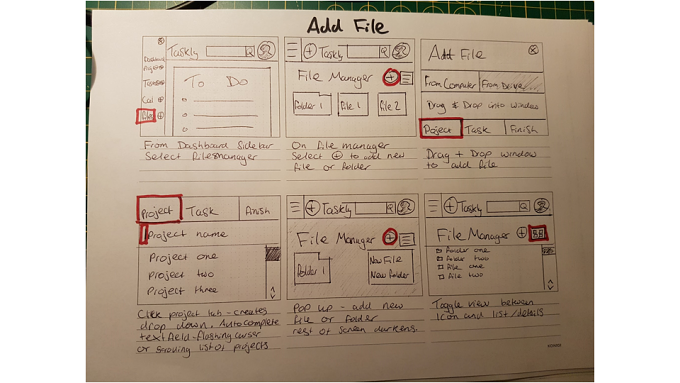 Add File
Taskly
Projects
Task
Cal
Files
To Do
From Dashboard Sidebar
Select filemanager
Taskly
File Manager
Folder 1
File 1
File 2
On file manager
Select + to add new
file or folder
Add File
From Computer
From Device
Drag & Drop into window
Poject
Task
Finish
Drag + Drop window
to add file
Project
Task
Finish
Project name
Project one
Project two
Project three
Click project tab - creates
drop down. Autocomplete
textfield - flashing cursor
or scrolling list of projects
Taskly
File Manager
Folder 1
New File
New Folder
Pop up - add new
file or folder
rest of screen darkens.
Taskly
File Manager
Folder one
Folder two
File one
File two
Toggle view between
Icon and list/details